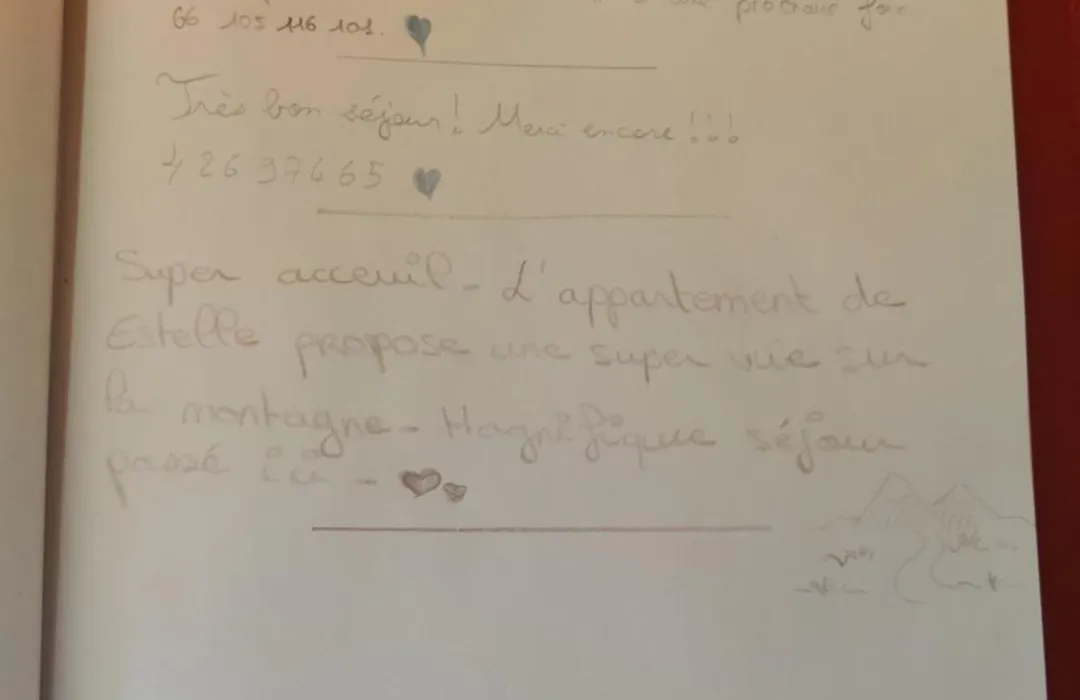 prochaine fois
66 105 116 101.
Très bon séjour! Merci encore!!!
4 26 97465
Super acceuil - L'appartement de
Estelle propose une super vue sur
la montagne - Magnifique séjour
passé ici -